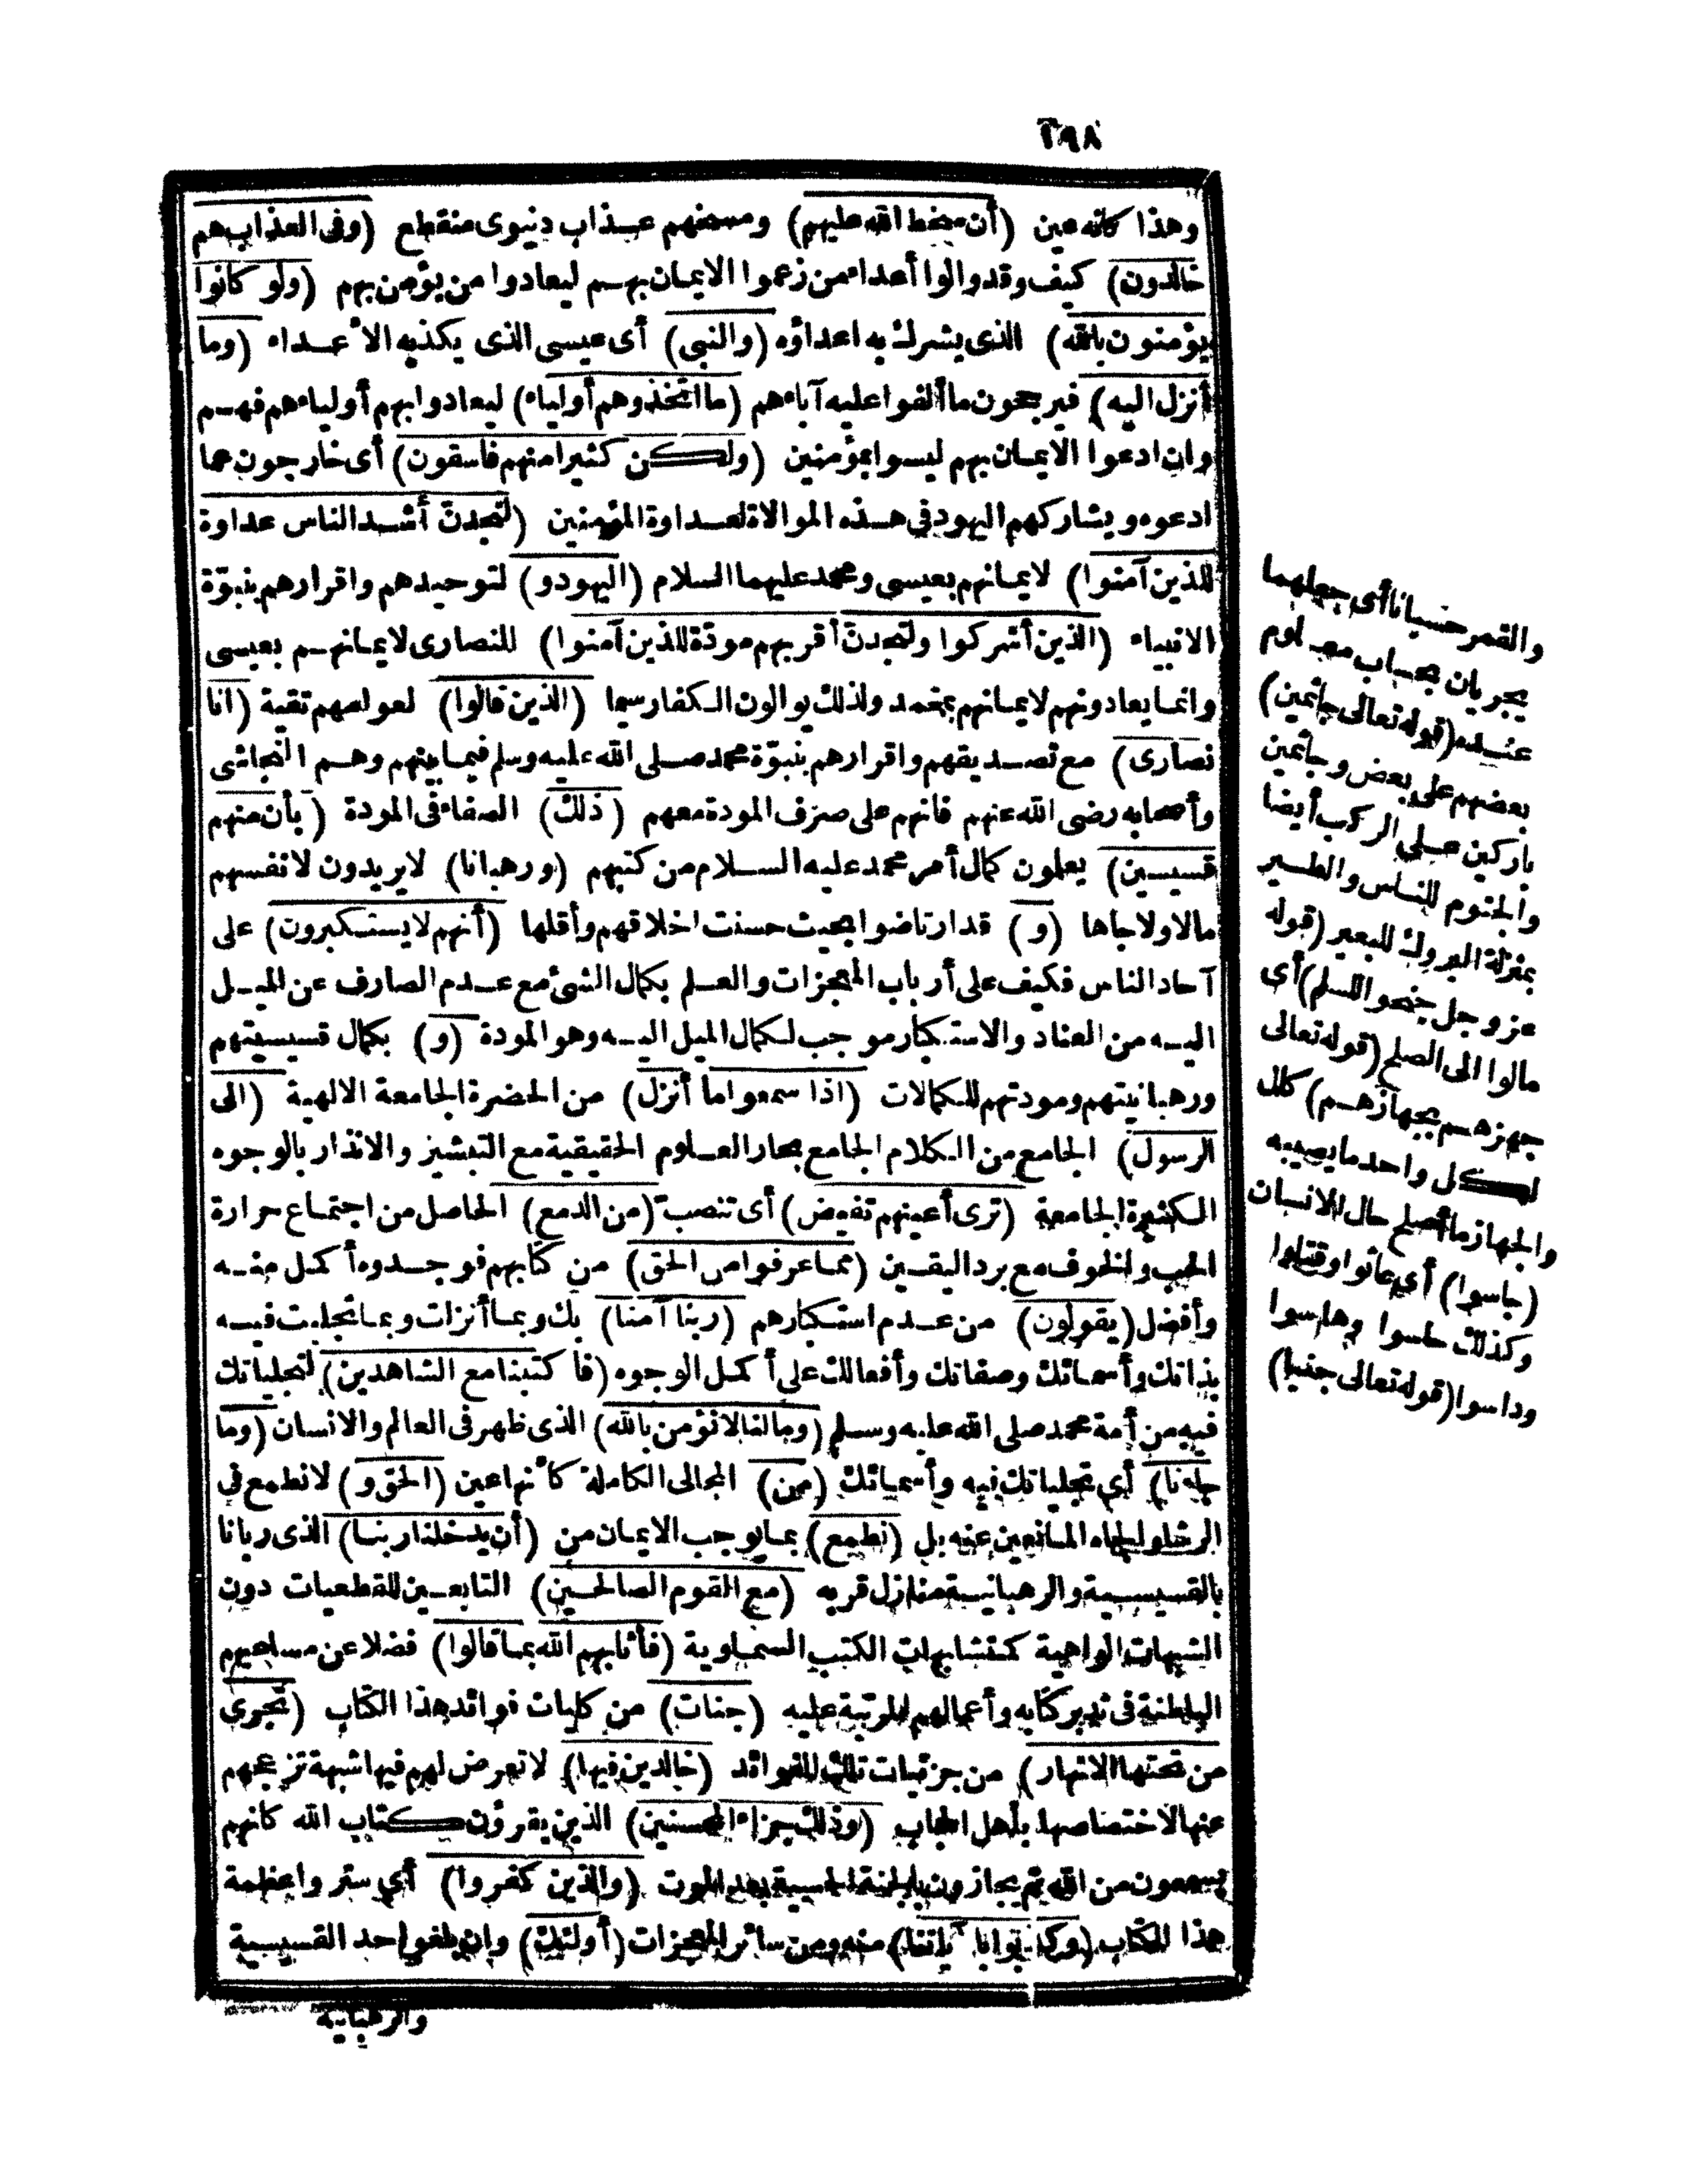 ١٩٨
وهذا كانه عين (أن سخط الله عليهم) ومسخهم عذاب دنيوى منقطع (وفى العذاب هم
خالدون) كيف وقد والوا أعداء من زعموا الايمان بهم ليعادوا من يؤمن بهم (ولو كانوا
يؤمنون بالله) الذى يشرك به اعداؤه (والنبى) أى عيسى الذى يكذبه الاعداء (وما
أنزل اليه) فيرجحون ما ألفوا عليه آباءهم (ما اتخذوهم أولياء) ليعادوا بهم أولياءهم فهم
وان ادعوا الايمان بهم ليسوا بمؤمنين (ولكن كثيرا منهم فاسقون) أى خارجون عما
ادعوه ويشاركهم اليهود فى هذه الموالاة لعداوة المؤمنين (لتجدن أشد الناس عداوة
للذين آمنوا) لايمانهم بعيسى ومحمد عليهما السلام (اليهود و) لتوحيدهم واقرارهم بنبوّة
الانبياء (الذين أشركوا ولتجدنّ أقربهم مودّة للذين آمنوا) للنصارى لايمانهم بعيسى
وانما يعادونهم لايمانهم بمحمد ولذلك يوالون الكفار سيما (الذين قالوا) لعوامهم تقية (انا
نصارى) مع تصديقهم واقرارهم بنبوّة محمد صلى الله عليه وسلم فيما بينهم وهم النجاشى
وأصحابه رضى الله عنهم فانهم على صرف المودة معهم (ذلك) الصفاء فى المودة (بأن منهم
قسيسين) يعلمون كمال أمر محمد عليه السلام من كتبهم (ورهبانا) لايريدون لانفسهم
مالا ولا جاها (و) قد ارتاضوا بحيث حسنت اخلاقهم وأقلها (أنهم لا يستكبرون) على
آحاد الناس فكيف على أرباب المعجزات والعلم بكمال الشئ مع عدم الصارف عن الميل
اليه من العناد والاستكبار موجب لكمال الميل اليه وهو المودة (و) بكمال قسيسيتهم
ورهبانيتهم ومودتهم للكمالات (اذا سمعوا ما أنزل) من الحضرة الجامعة الالهية (الى
الرسول) الجامع من الكلام الجامع بحار العلوم الحقيقية مع التبشير والانذار بالوجوه
الكثيرة الجامعة (ترى أعينهم تفيض) أى تنصبّ (من الدمع) الحاصل من اجتماع حرارة
الحب والخوف مع برد اليقين (مما عرفوا من الحق) من كتابهم فوجدوه أكمل منه
وأفضل (يقولون) من عدم استكبارهم (ربنا آمنا) بك وبما أنزلت وبما تجليت فيه
بذاتك وأسمائك وصفاتك وأفعالك على أكمل الوجوه (فاكتبنا مع الشاهدين) لتجلياتك
فيه من أمة محمد صلى الله عليه وسلم (وما لنا لانؤمن بالله) الذى ظهر فى العالم والانسان (وما
جاءنا) أى تجلياتك فيه وأسميائك (من) المجالى الكاملة كأنها عين (الحق و) لانطمع فى
الرشا والجاه المانعين عنه بل (نطمع) بما يوجب الايمان من (أن يدخلنا ربنا) الذى ربانا
بالقسيسية والرهبانية منازل قربه (مع القوم الصالحين) التابعين للقطعيات دون
الشبهات الواهية كمتشابهات الكتب السماوية (فأثابهم الله بما قالوا) فضلا عن مساعيهم
الباطنة فى تدبر كتابه وأعمالهم المرتبة عليه (جنات) من كليات فوائد هذا الكتاب (تجرى
من تحتها الانهار) من جزئيات تلك الفوائد (خالدين فيها) لا تعرض لهم فيها شبهة تزعجهم
عنها لاختصاصها بأهل الحجاب (وذلك جزاء المحسنين) الذين يقرؤن كتاب الله كانهم
يسمعون من الله ثم يجازون بالجنة الحسية بعد الموت (والذين كفروا) أى ستروا عظمة
هذا الكتاب (وكذبوا بآياتنا) منه ومن سائر المعجزات (أولئك) وان بلغوا حد القسيسية
والرهبانية
والقمر حسبانا أى جعلهما
يجريان بحساب معلوم
عنده (قوله تعالى جاثمين)
بعضهم على بعض وجاثمين
باركين على الركب أيضا
والجثوم للناس والطير
بمنزلة البروك للبعير (قوله
عز وجل جنحوا للسلم) أى
مالوا الى الصلح (قوله تعالى
جهزهم بجهازهم) كال
لكل واحد ما يصيبه
والجهاز ما أصلح حال الانسان
(جاسوا) أى عاثوا وقتلوا
وكذلك حاسوا وهاسوا
وداسوا (قوله تعالى جنيا)